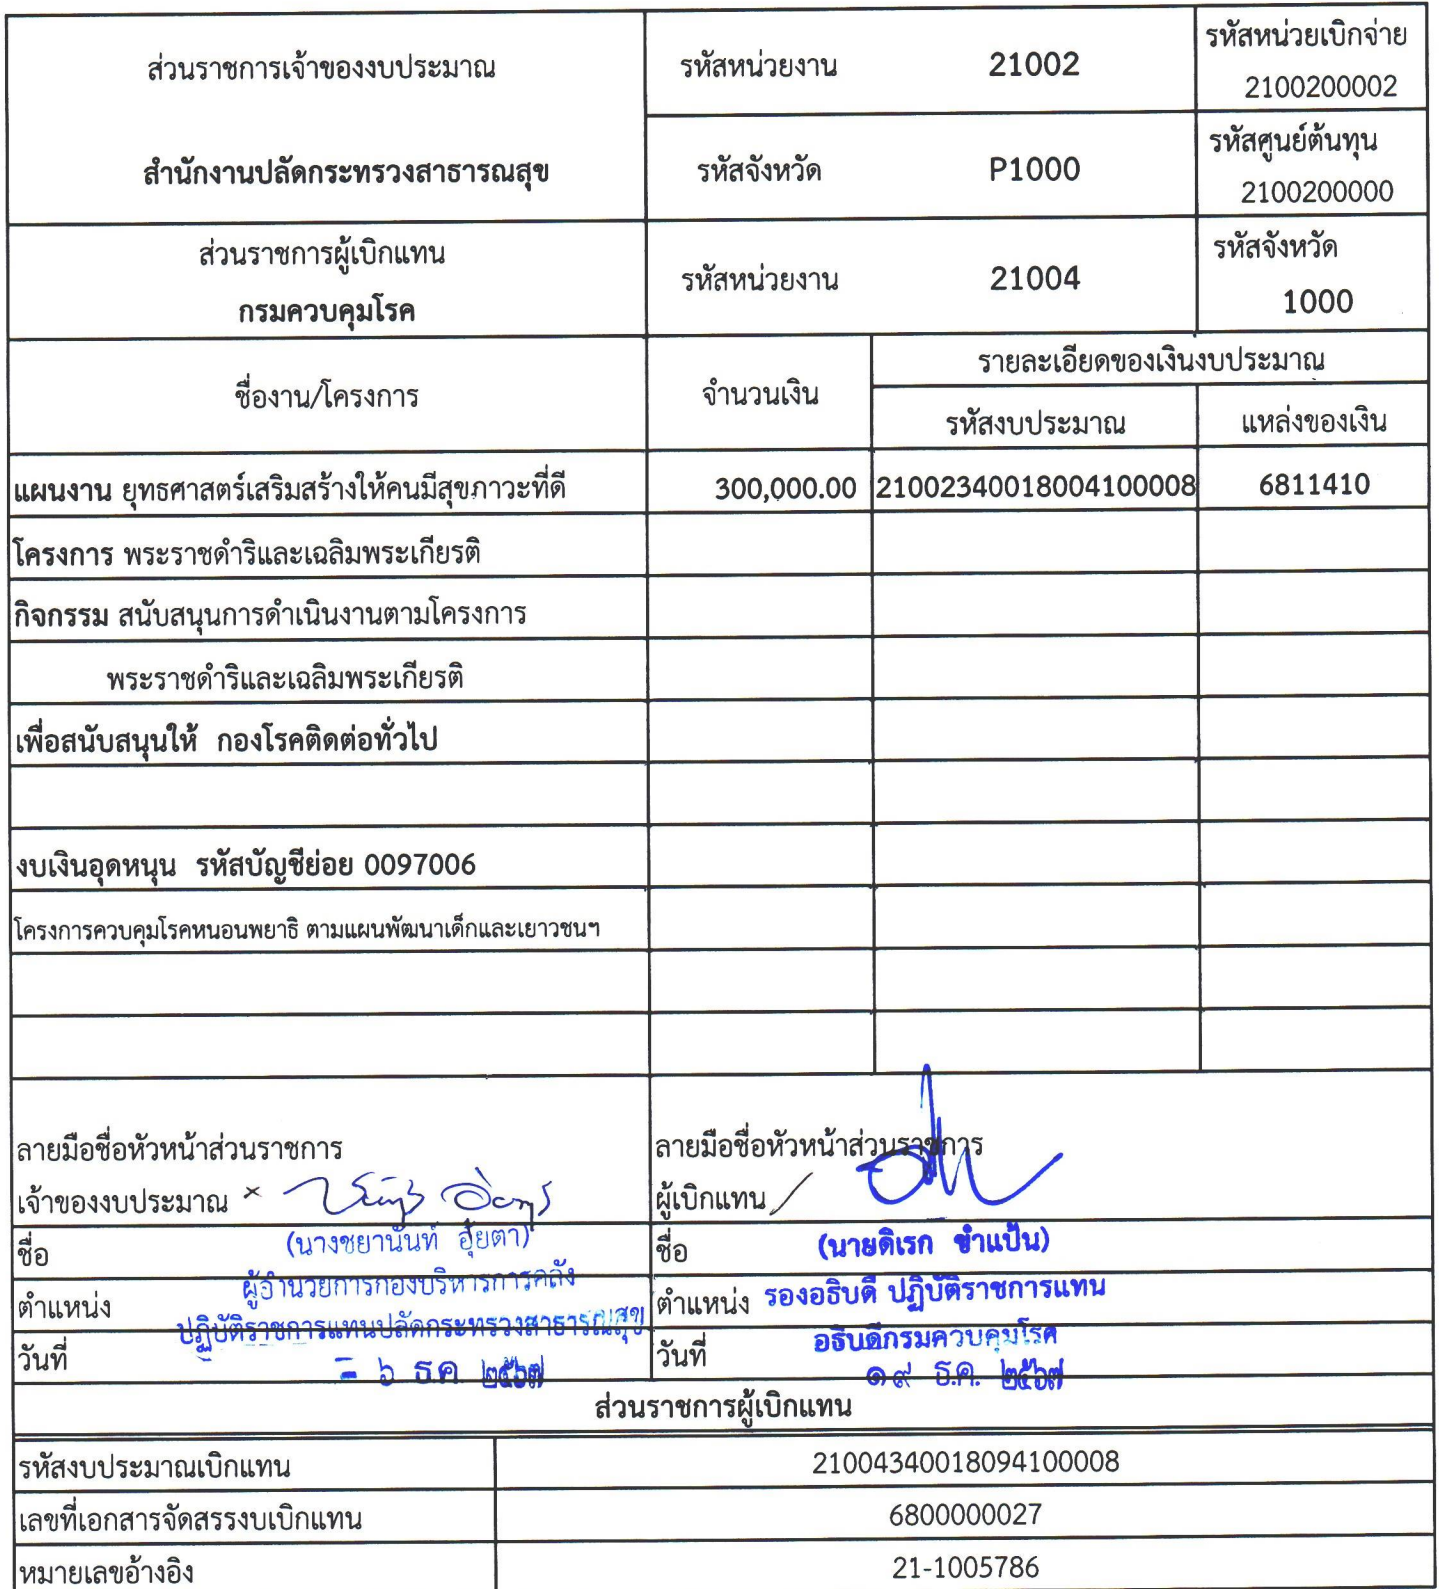 ส่วนราชการเจ้าของงบประมาณ
สำนักงานปลัดกระทรวงสาธารณสุข
รหัสหน่วยงาน 21002
รหัสหน่วยเบิกจ่าย
2100200002
รหัสจังหวัด P1000
รหัสศูนย์ต้นทุน
2100200000
ส่วนราชการผู้เบิกแทน
กรมควบคุมโรค
รหัสหน่วยงาน 21004
รหัสจังหวัด
1000
ชื่องาน/โครงการ
จำนวนเงิน
รายละเอียดของเงินงบประมาณ
รหัสงบประมาณ
แหล่งของเงิน
แผนงาน ยุทธศาสตร์เสริมสร้างให้คนมีสุขภาวะที่ดี 300,000.00 21002340018004100008 6811410
โครงการ พระราชดำริและเฉลิมพระเกียรติ
กิจกรรม สนับสนุนการดำเนินงานตามโครงการ
พระราชดำริและเฉลิมพระเกียรติ
เพื่อสนับสนุนให้ กองโรคติดต่อทั่วไป
งบเงินอุดหนุน รหัสบัญชีย่อย 0097006
โครงการควบคุมโรคหนอนพยาธิ ตามแผนพัฒนาเด็กและเยาวชนฯ
ลายมือชื่อหัวหน้าส่วนราชการ
เจ้าของงบประมาณ ×
ชื่อ (นางชยานันท์ อุ้ยตา)
ผู้อำนวยการกองบริหารการคลัง
ตำแหน่ง
ปฏิบัติราชการแทนปลัดกระทรวงสาธารณสุข
วันที่
- ๖ ธ.ค. ๒๕๖๗
ลายมือชื่อหัวหน้าส่วนราชการ
ผู้เบิกแทน /
ชื่อ (นายดิเรก ขำแป้น)
ตำแหน่ง รองอธิบดี ปฏิบัติราชการแทน
อธิบดีกรมควบคุมโรค
วันที่
๑๙ ธ.ค. ๒๕๖๗
ส่วนราชการผู้เบิกแทน
รหัสงบประมาณเบิกแทน 21004340018094100008
เลขที่เอกสารจัดสรรงบเบิกแทน 6800000027
หมายเลขอ้างอิง 21-1005786